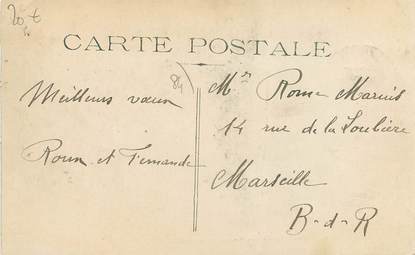 20 €
CARTE POSTALE
84
Meilleurs vœux
Roun et Fernande
Mr Rome Marius
14 rue de la Loubière
Marseille
B-d-R